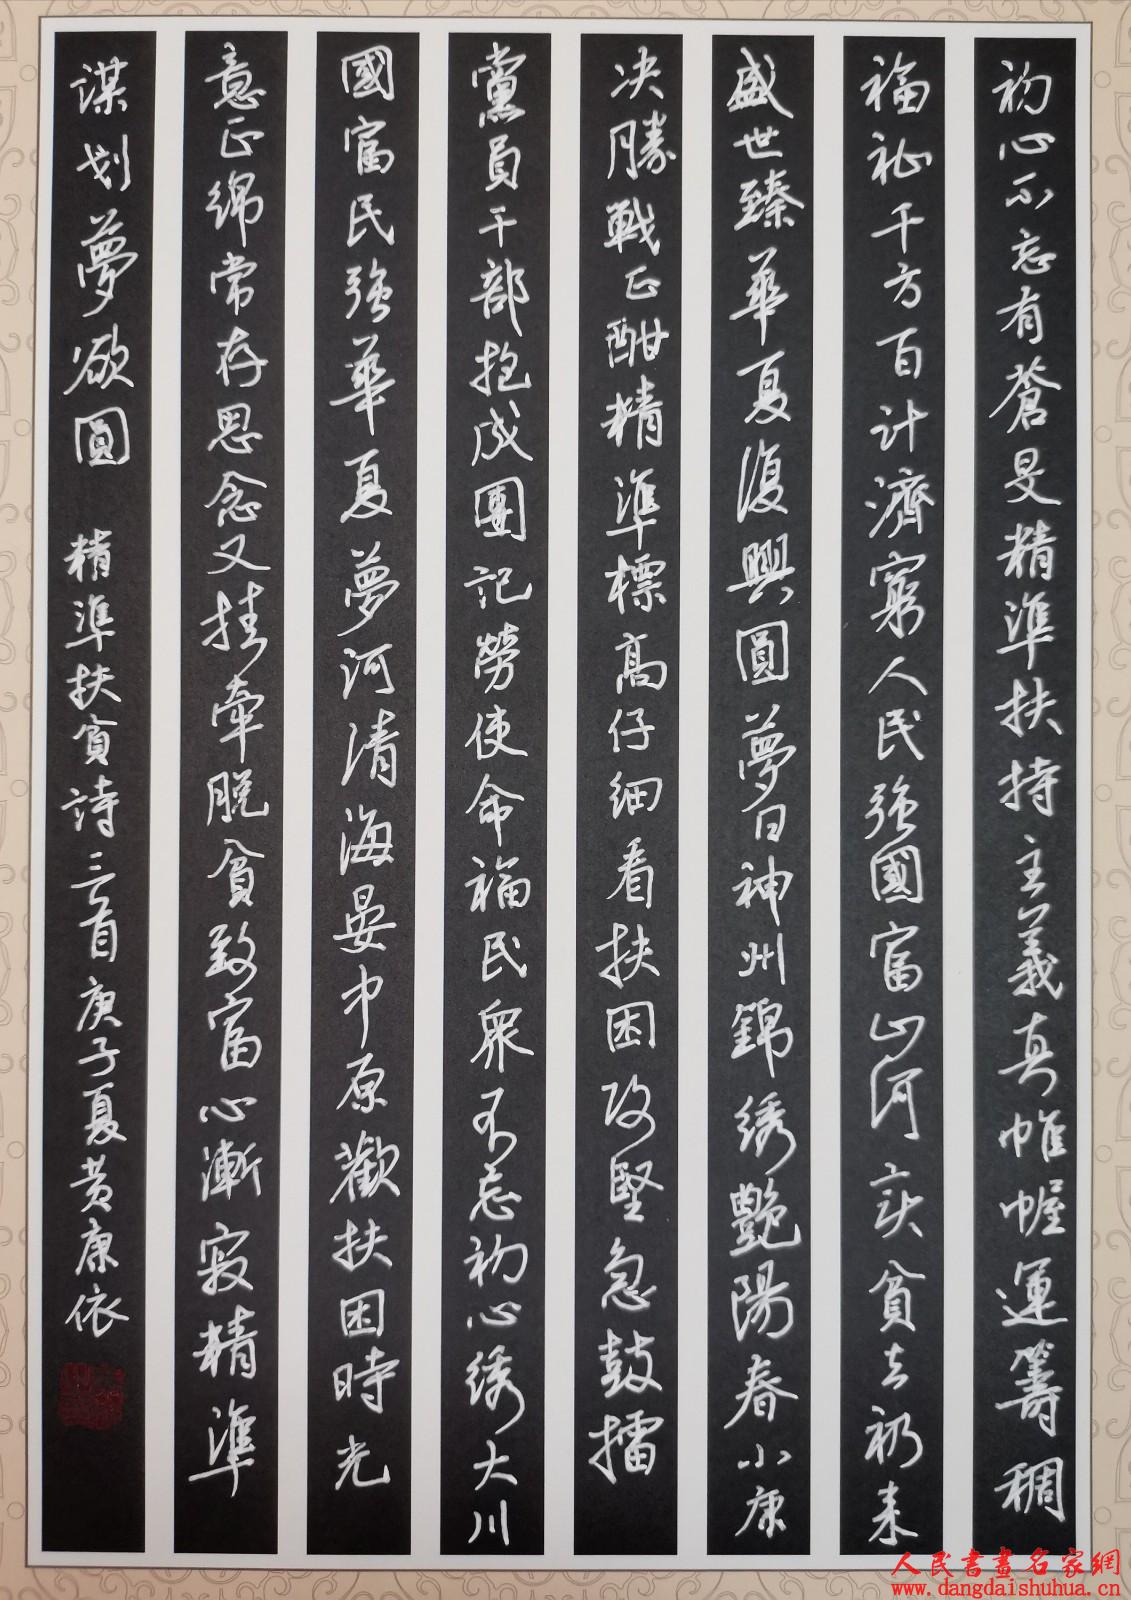 初心不忘有蒼旻精準扶持主義真帷幄運籌稠
福祉千方百計濟窮人民強國富山河寀貧去礽来
盛世臻華夏復興圓夢日神州錦绣艷陽春小康
决勝戰正酣精準標高仔细看扶困攻堅急鼓擂
黨員干部抱成團記勞使命福民衆不忘初心绣大川
國富民強華夏夢河清海晏中原歡扶困時光
意正綿常存思念又挂牽脱貧致富心漸寂精準
谋划夢欲圓 精準扶貧詩三首庚子夏黄康依
人民書畫名家網
www.dangdaishuhua.cn